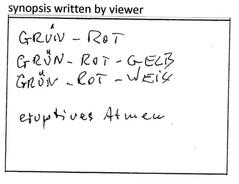 synopsis written by viewer
GRÜN - ROT
GRÜN - ROT - GELB
GRÜN - ROT - WEIß
eruptives Atmen